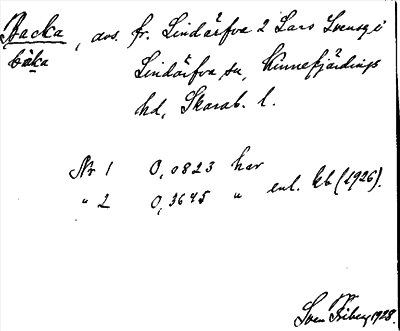 Backa, avs. fr. Lindärfva 2 Lars Svensg i
båka
Lindärfva sn, Kinnefjärdings
hd, Skarab. l.
Nr 1 0,0823 har
" 2 0,3645 " enl. kb (1926).
Sven Friberg 1928.